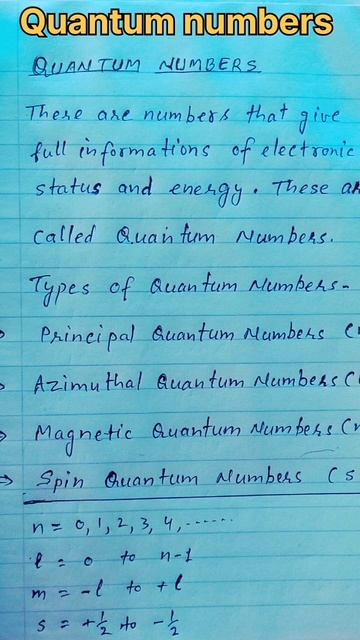 Quantum numbers
QUANTUM NUMBERS
These are numbers that give
full informations of electronic
status and energy. These ar
called Quantum Numbers.
Types of Quantum Numbers-
Principal Quantum Numbers (n
Azimuthal Quantum Numbers (
Magnetic Quantum Numbers (m
→ Spin Quantum Numbers (s
n = 0, 1, 2, 3, 4, ......
l = 0 to n-1
m = -l to +l
s = +1/2 to -1/2